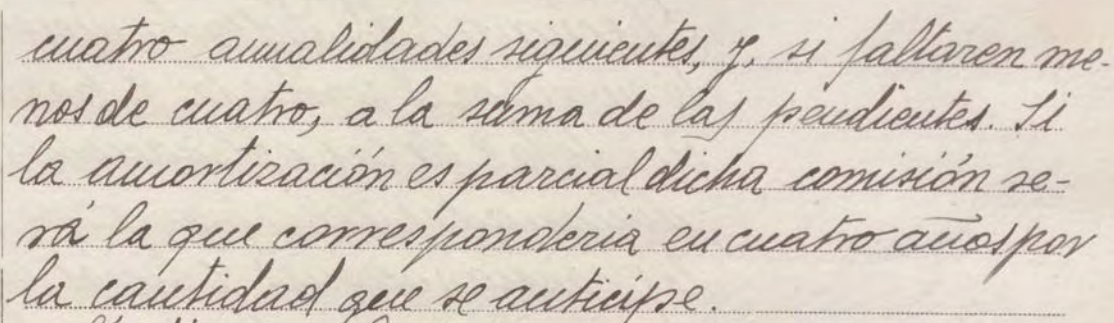 cuatro anualidades siguientes, y, si faltaren me-
nos de cuatro, a la suma de las pendientes. Si
la amortización es parcial dicha comisión se-
rá la que correspondería en cuatro años por
la cantidad que se anticipe.